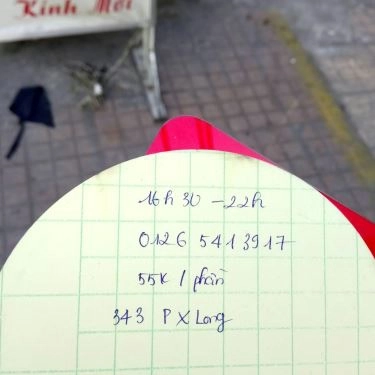 Kính Mời
16h30 - 22h
0126 541 3917
55K / phần
343 P X Long